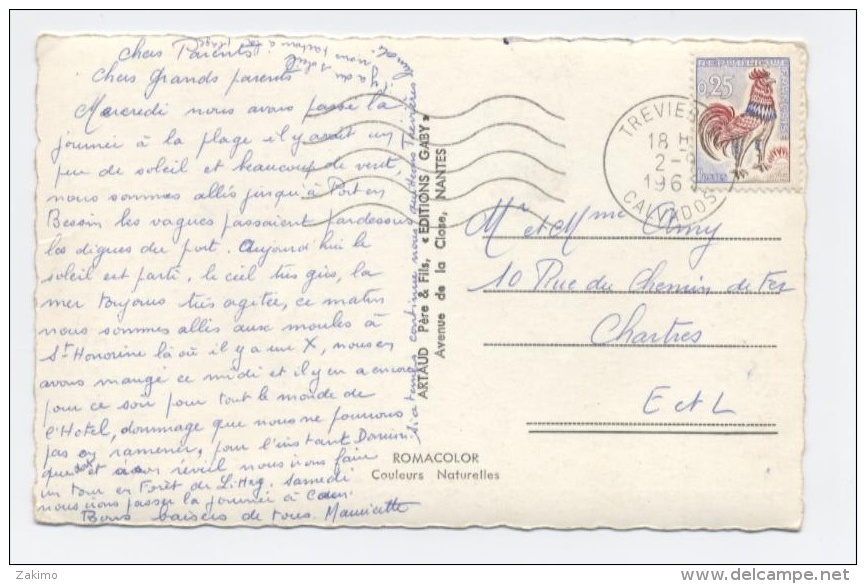 Chers Parents
Chers Grands parents
Mercredi nous avons passé la
journée à la plage il y avait un
peu de soleil et beaucoup de vent,
nous sommes allés jusqu'à Port en
Bessin les vagues passaient pardessus
les digues du port. Aujourd'hui le
soleil est parti, le ciel très gris, la
mer toujours très agitée, ce matin
nous sommes allés aux moules à
St Honorine là où il y a une X, nous en
avons mangé ce midi et il y en a encore
pour ce soir pour tout le monde de
l'Hotel, dommage que nous ne pouvons
pas en ramener, pour l'instant
dort et à son réveil nous irons faire
un tour en Forêt de Littry. Samedi
nous irons passer la journée à Caen.
Bons baisers de tous. Mauricette
Si ce temps continue nous quitterons Trévières lundi.
il y a du soleil
nous partons à la plage
ARTAUD Père & Fils, « EDITIONS GABY »
Avenue de la Close, NANTES
ROMACOLOR
Couleurs Naturelles
0,25
TREVIERES
18 H
2-
196
CALVADOS
Mr et Mme Amy
10 Rue du Chemin de Fer
Chartres
E et L
Zakimo
delcampe.net